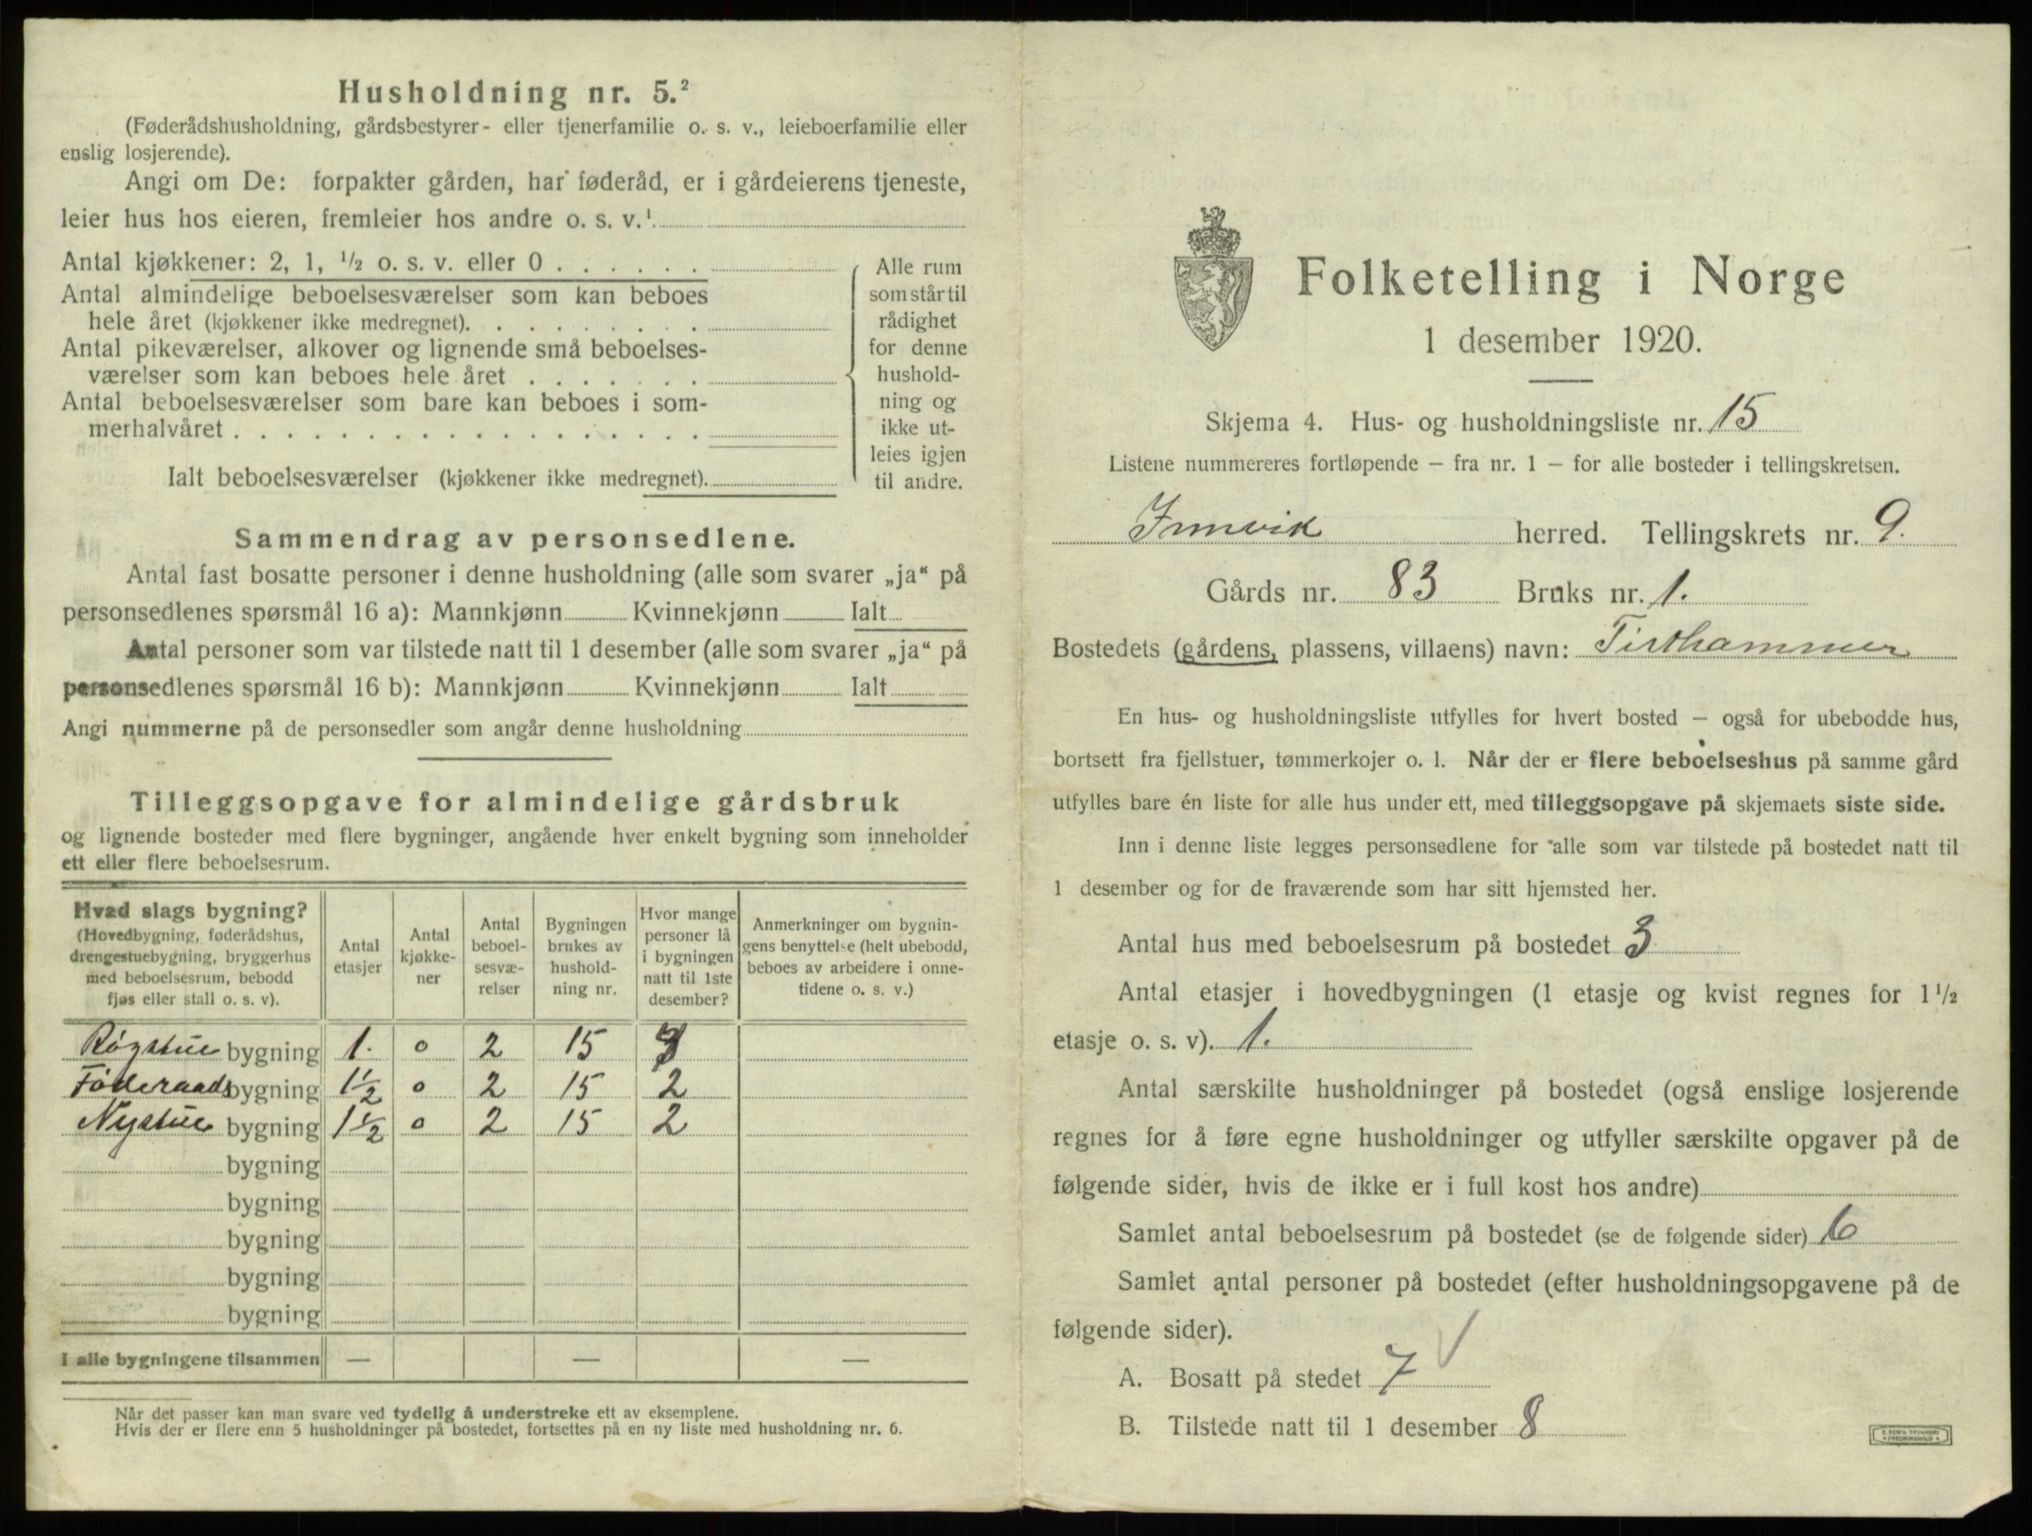 Husholdning nr. 5.²
(Føderådshusholdning, gårdsbestyrer- eller tjenerfamilie o. s. v., leieboerfamilie eller
enslig losjerende).
Angi om De: forpakter gården, har føderåd, er i gårdeierens tjeneste,
leier hus hos eieren, fremleier hos andre o. s. v.¹
Antal kjøkkener: 2, 1, ½ o. s. v. eller 0 . . . . . .
Antal almindelige beboelsesværelser som kan beboes
hele året (kjøkkener ikke medregnet). . . . . . . . .
Antal pikeværelser, alkover og lignende små beboelses-
værelser som kan beboes hele året . . . . . . .
Antal beboelsesværelser som bare kan beboes i som-
merhalvåret . . . . . . . . . . . . . . . . . .
Ialt beboelsesværelser (kjøkkener ikke medregnet).
Alle rum
som står til
rådighet
for denne
hushold-
ning og
ikke ut-
leies igjen
til andre.
Sammendrag av personsedlene.
Antal fast bosatte personer i denne husholdning (alle som svarer „ja“ på
personsedlenes spørsmål 16 a): Mannkjønn Kvinnekjønn Ialt
Antal personer som var tilstede natt til 1 desember (alle som svarer „ja“ på
personsedlenes spørsmål 16 b): Mannkjønn Kvinnekjønn Ialt
Angi nummerne på de personsedler som angår denne husholdning
Tilleggsopgave for almindelige gårdsbruk
og lignende bosteder med flere bygninger, angående hver enkelt bygning som inneholder
ett eller flere beboelsesrum.
Hvad slags bygning?
(Hovedbygning, føderådshus,
drengestuebygning, bryggerhus
med beboelsesrum, bebodd
fjøs eller stall o. s. v).
Antal
etasjer
Antal
kjøkke-
ner
Antal
beboel-
sesvæ-
relser
Bygningen
brukes av
hushold-
ning nr.
Hvor mange
personer lå
i bygningen
natt til 1ste
desember?
Anmerkninger om bygnin-
gens benyttelse (helt ubebodd,
beboes av arbeidere i onne-
tidene o. s. v.)
Røgstue bygning 1. 0 2 15
Føderaads bygning 1½ 0 2 15 2
Nystue bygning 1½ 0 2 15 2
bygning
bygning
bygning
bygning
bygning
I alle bygningene tilsammen — — —
Når det passer kan man svare ved tydelig å understreke ett av eksemplene.
Hvis der er flere enn 5 husholdninger på bostedet, fortsettes på en ny liste med husholdning nr. 6.
Folketelling i Norge
1 desember 1920.
Skjema 4. Hus- og husholdningsliste nr. 15
Listene nummereres fortløpende – fra nr. 1 – for alle bosteder i tellingskretsen.
Innvik herred. Tellingskrets nr. 9.
Gårds nr. 83 Bruks nr. 1.
Bostedets (gårdens, plassens, villaens) navn: Tisthammer
En hus- og husholdningsliste utfylles for hvert bosted – også for ubebodde hus,
bortsett fra fjellstuer, tømmerkojer o. l. Når der er flere beboelseshus på samme gård
utfylles bare én liste for alle hus under ett, med tilleggsopgave på skjemaets siste side.
Inn i denne liste legges personsedlene for alle som var tilstede på bostedet natt til
1 desember og for de fraværende som har sitt hjemsted her.
Antal hus med beboelsesrum på bostedet 3
Antal etasjer i hovedbygningen (1 etasje og kvist regnes for 1½
etasje o. s. v). 1.
Antal særskilte husholdninger på bostedet (også enslige losjerende
regnes for å føre egne husholdninger og utfyller særskilte opgaver på de
følgende sider, hvis de ikke er i full kost hos andre)
Samlet antal beboelsesrum på bostedet (se de følgende sider) 6
Samlet antal personer på bostedet (efter husholdningsopgavene på de
følgende sider).
A. Bosatt på stedet 7
B. Tilstede natt til 1 desember 8